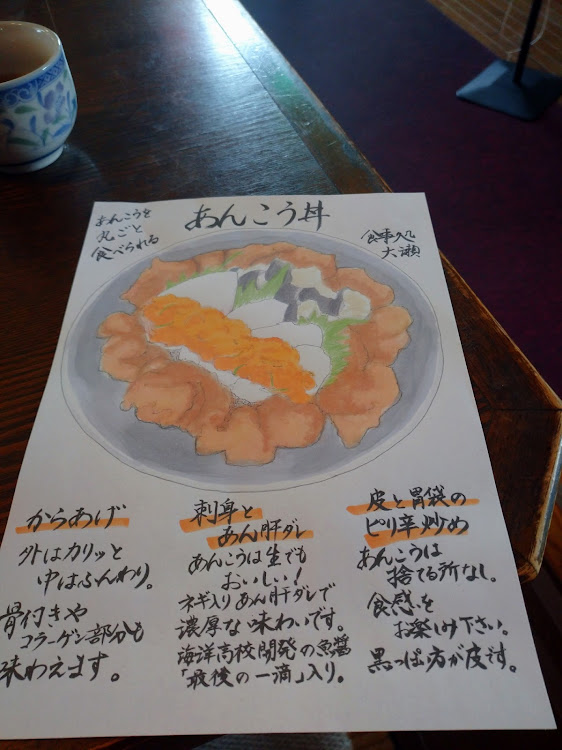 あんこうを
丸ごと
食べられる
あんこう丼
食事処
大瀬
からあげ
外はカリッと
中はふんわり。
骨付きや
コラーゲン部分も
味わえます。
刺身と
あん肝ダレ
あんこうは生でも
おいしい!
ネギ入りあん肝ダレで
濃厚な味わいです。
海洋高校開発の魚醤
「最後の一滴」入り。
皮と胃袋の
ピリ辛炒め
あんこうは
捨てる所なし。
食感を
お楽しみ下さい。
黒っぽい方が皮です。